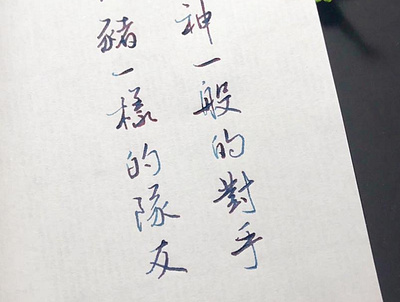 神一般的對手
豬一樣的隊友